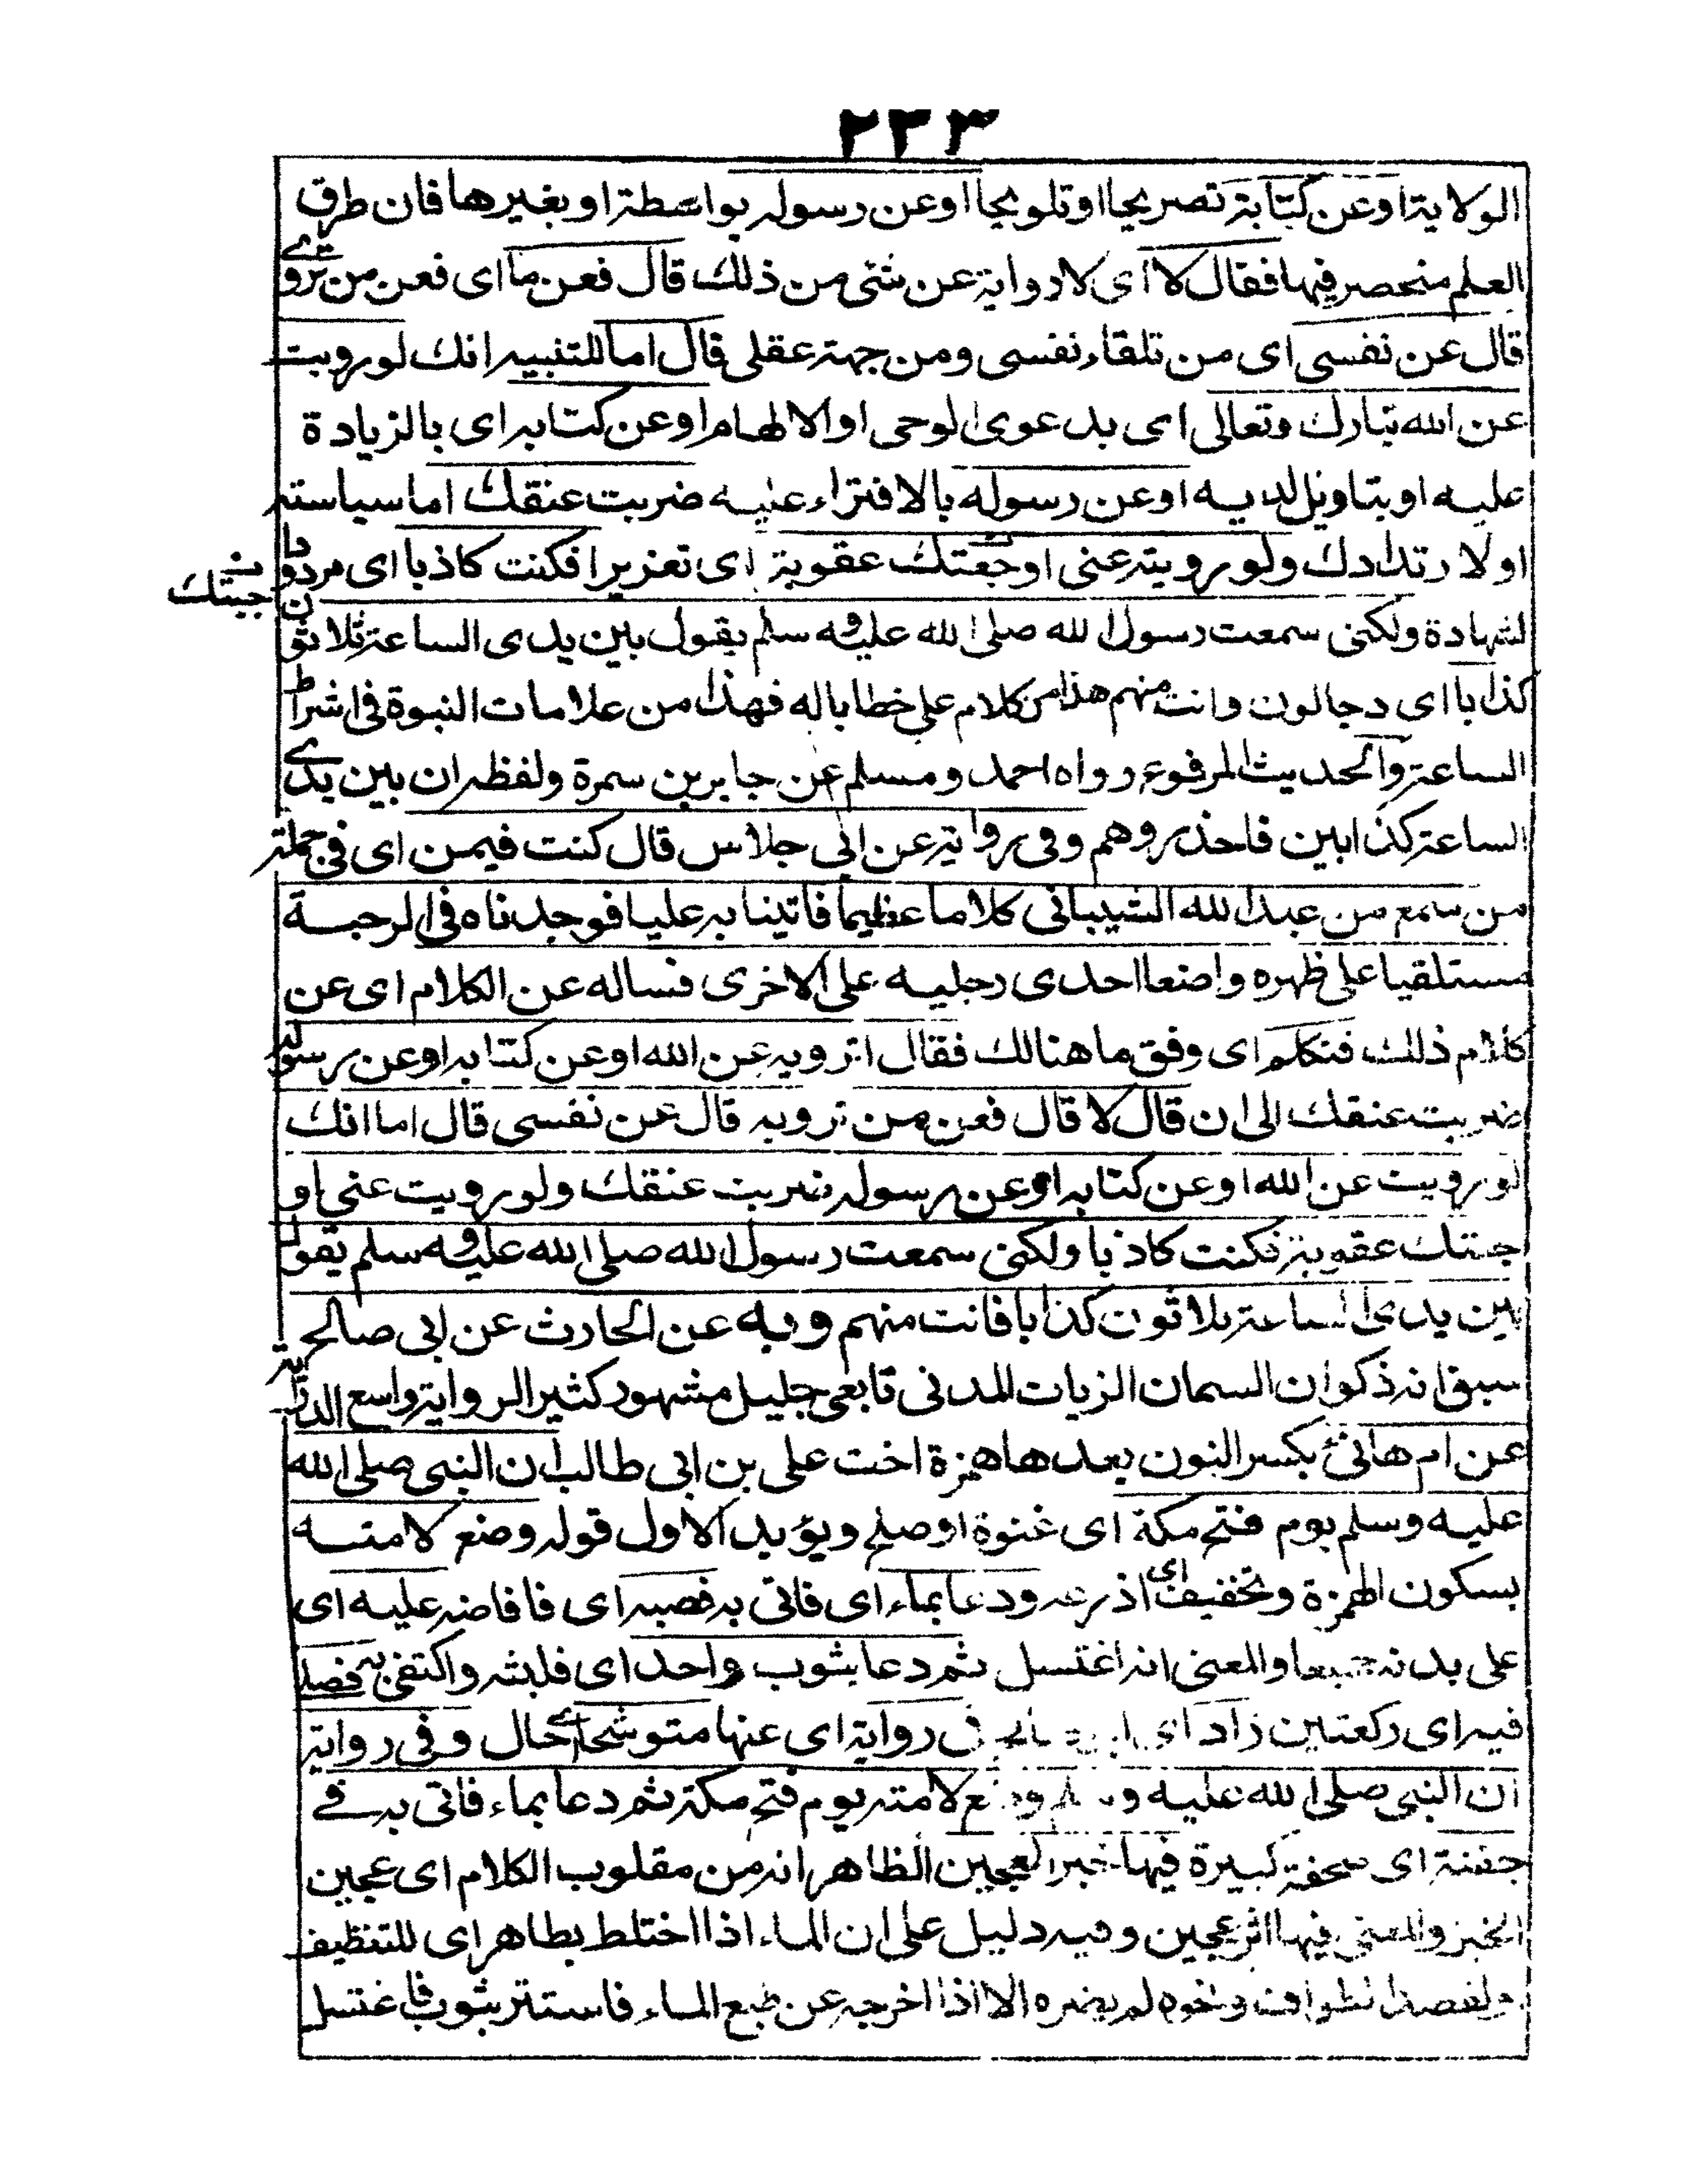 ٢٣٣
الولاية اوعن كتابة تصريحا اوتلويحا اوعن رسوله بواسطة اوبغيرها فان طرق
العلم منحصر فيها فقال لا اى لا رواية عن شئ من ذلك قال فعن ما اى فعن من تروے
قال عن نفسى اى من تلقاء نفسى ومن جهة عقلى قال اما للتنبيه انك لورويت
عن الله تبارك وتعالى اى بدعوى الوحى او الالهام اوعن كتابه اى بالزيادة
عليه اوبتاويل لديه اوعن رسوله بالافتراء عليه ضربت عنقك اما سياسته
اولارتدادك ولورويته عنى اوجعتك عقوبة اى تعزيرا فكنت كاذبا اى مردود
ن جبيتك
لشهادة ولكنى سمعت رسول الله صلى الله عليه و سلم يقول بين يدى الساعة ثلاثون
كذابا اى دجالون وانت منهم هذا من كلام على خطابا له فهذا من علامات النبوة فى اشراط
الساعة والحديث المرفوع رواه احمد ومسلم عن جابر بن سمرة ولفظه ان بين يدے
الساعة كذابين فاحذروهم وفى رواية عن ابى جلاس قال كنت فيمن اى فى جملة
من سمع من عبد الله الشيبانى كلاما عظيما فاتينا به عليا فوجدناه فى الرحبة
مستلقيا على ظهره واضعا احدى رجليه على الاخرى فساله عن الكلام اى عن
كلام ذلك فتكلم اى وفق ما هنالك فقال اترويه عن الله اوعن كتابه اوعن رسوله
ضربت عنقك الى ان قال لا قال فعن من ترويه قال عن نفسى قال اما انك
لورويت عن الله اوعن كتابه اوعن رسوله ضربت عنقك ولورويت عنى او
جئتك عقوبة فكنت كاذبا ولكنى سمعت رسول الله صلى الله عليه و سلم يقول
بين يدى الساعة ثلاثون كذابا فانت منهم وبه عن الحارث عن ابى صالح
سبق انه ذكوان السمان الزيات المدنى تابعى جليل مشهور كثير الرواية واسع الدراية
عن ام هانئ بكسر النون بعدها همزة اخت على بن ابى طالب ان النبى صلى الله
عليه وسلم يوم فتح مكة اى عنوة اوصلح ويؤيد الاول قوله وضع لامته
بسكون الهمزة وتخفيف اى اذرعه ودعا بماء اى فاتى به فصبه اى فافاضه عليه اى
على بدنه جميعا والمعنى انه اغتسل ثم دعا بثوب واحد اى فلبشه واكتفى به فصلى
فيه اى ركعتين زاد فى رواية اى عنها متوشحا اے حال وفى رواية
ان النبى صلى الله عليه وسلم وضع لامته يوم فتح مكة ثم دعا بماء فاتى به فے
جفنة اى صحفة كبيرة فيها خبز العجين الظاهر انه من مقلوب الكلام اى عجين
الخبز والمعنى فيها اثر عجين وفيه دليل على ان الماء اذا اختلط بطاهر اى للتنظيف
ونحوه لم يضره الا اذا اخرجه عن طبع الماء فاستتر بثوب فاغتسل